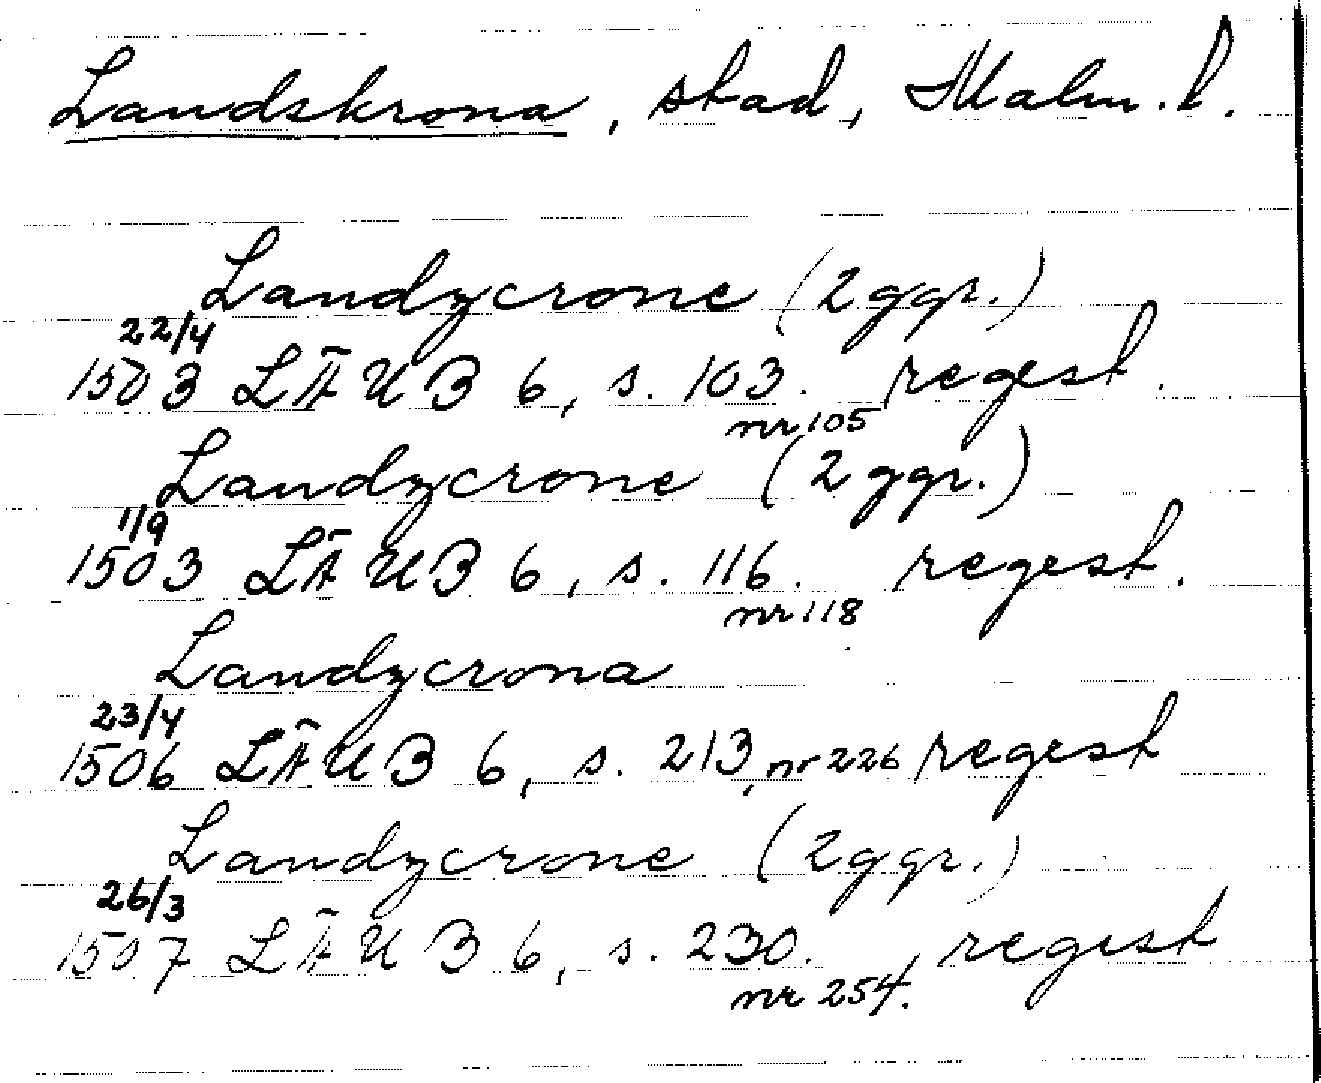 Landskrona, stad, Malm. l.
Landzcrone (2 ggr.)
22/4
1503 LÄUB 6, s. 103. regest.
nr 105
Landzcrone (2 ggr.)
1/9
1503 LÄUB 6, s. 116. regest.
nr 118
Landzcrona
23/4
1506 LÄUB 6, s. 213, nr 226 regest
Landzcrone (2 ggr.)
26/3
1507 LÄUB 6, s. 230. regest
nr 254.